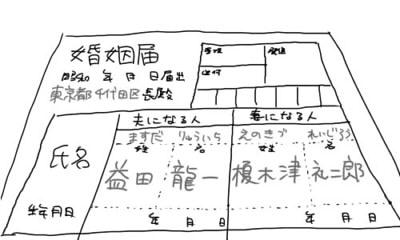 婚姻届
昭和 年 月 日届出
東京都千代田区長殿
受理 発送
送付
夫になる人 妻になる人
ますだ りゅういち えのきづ れいじろう
氏名
姓 名 姓 名
益田 龍一 榎木津 礼二郎
生年月日 年 月 日 年 月 日